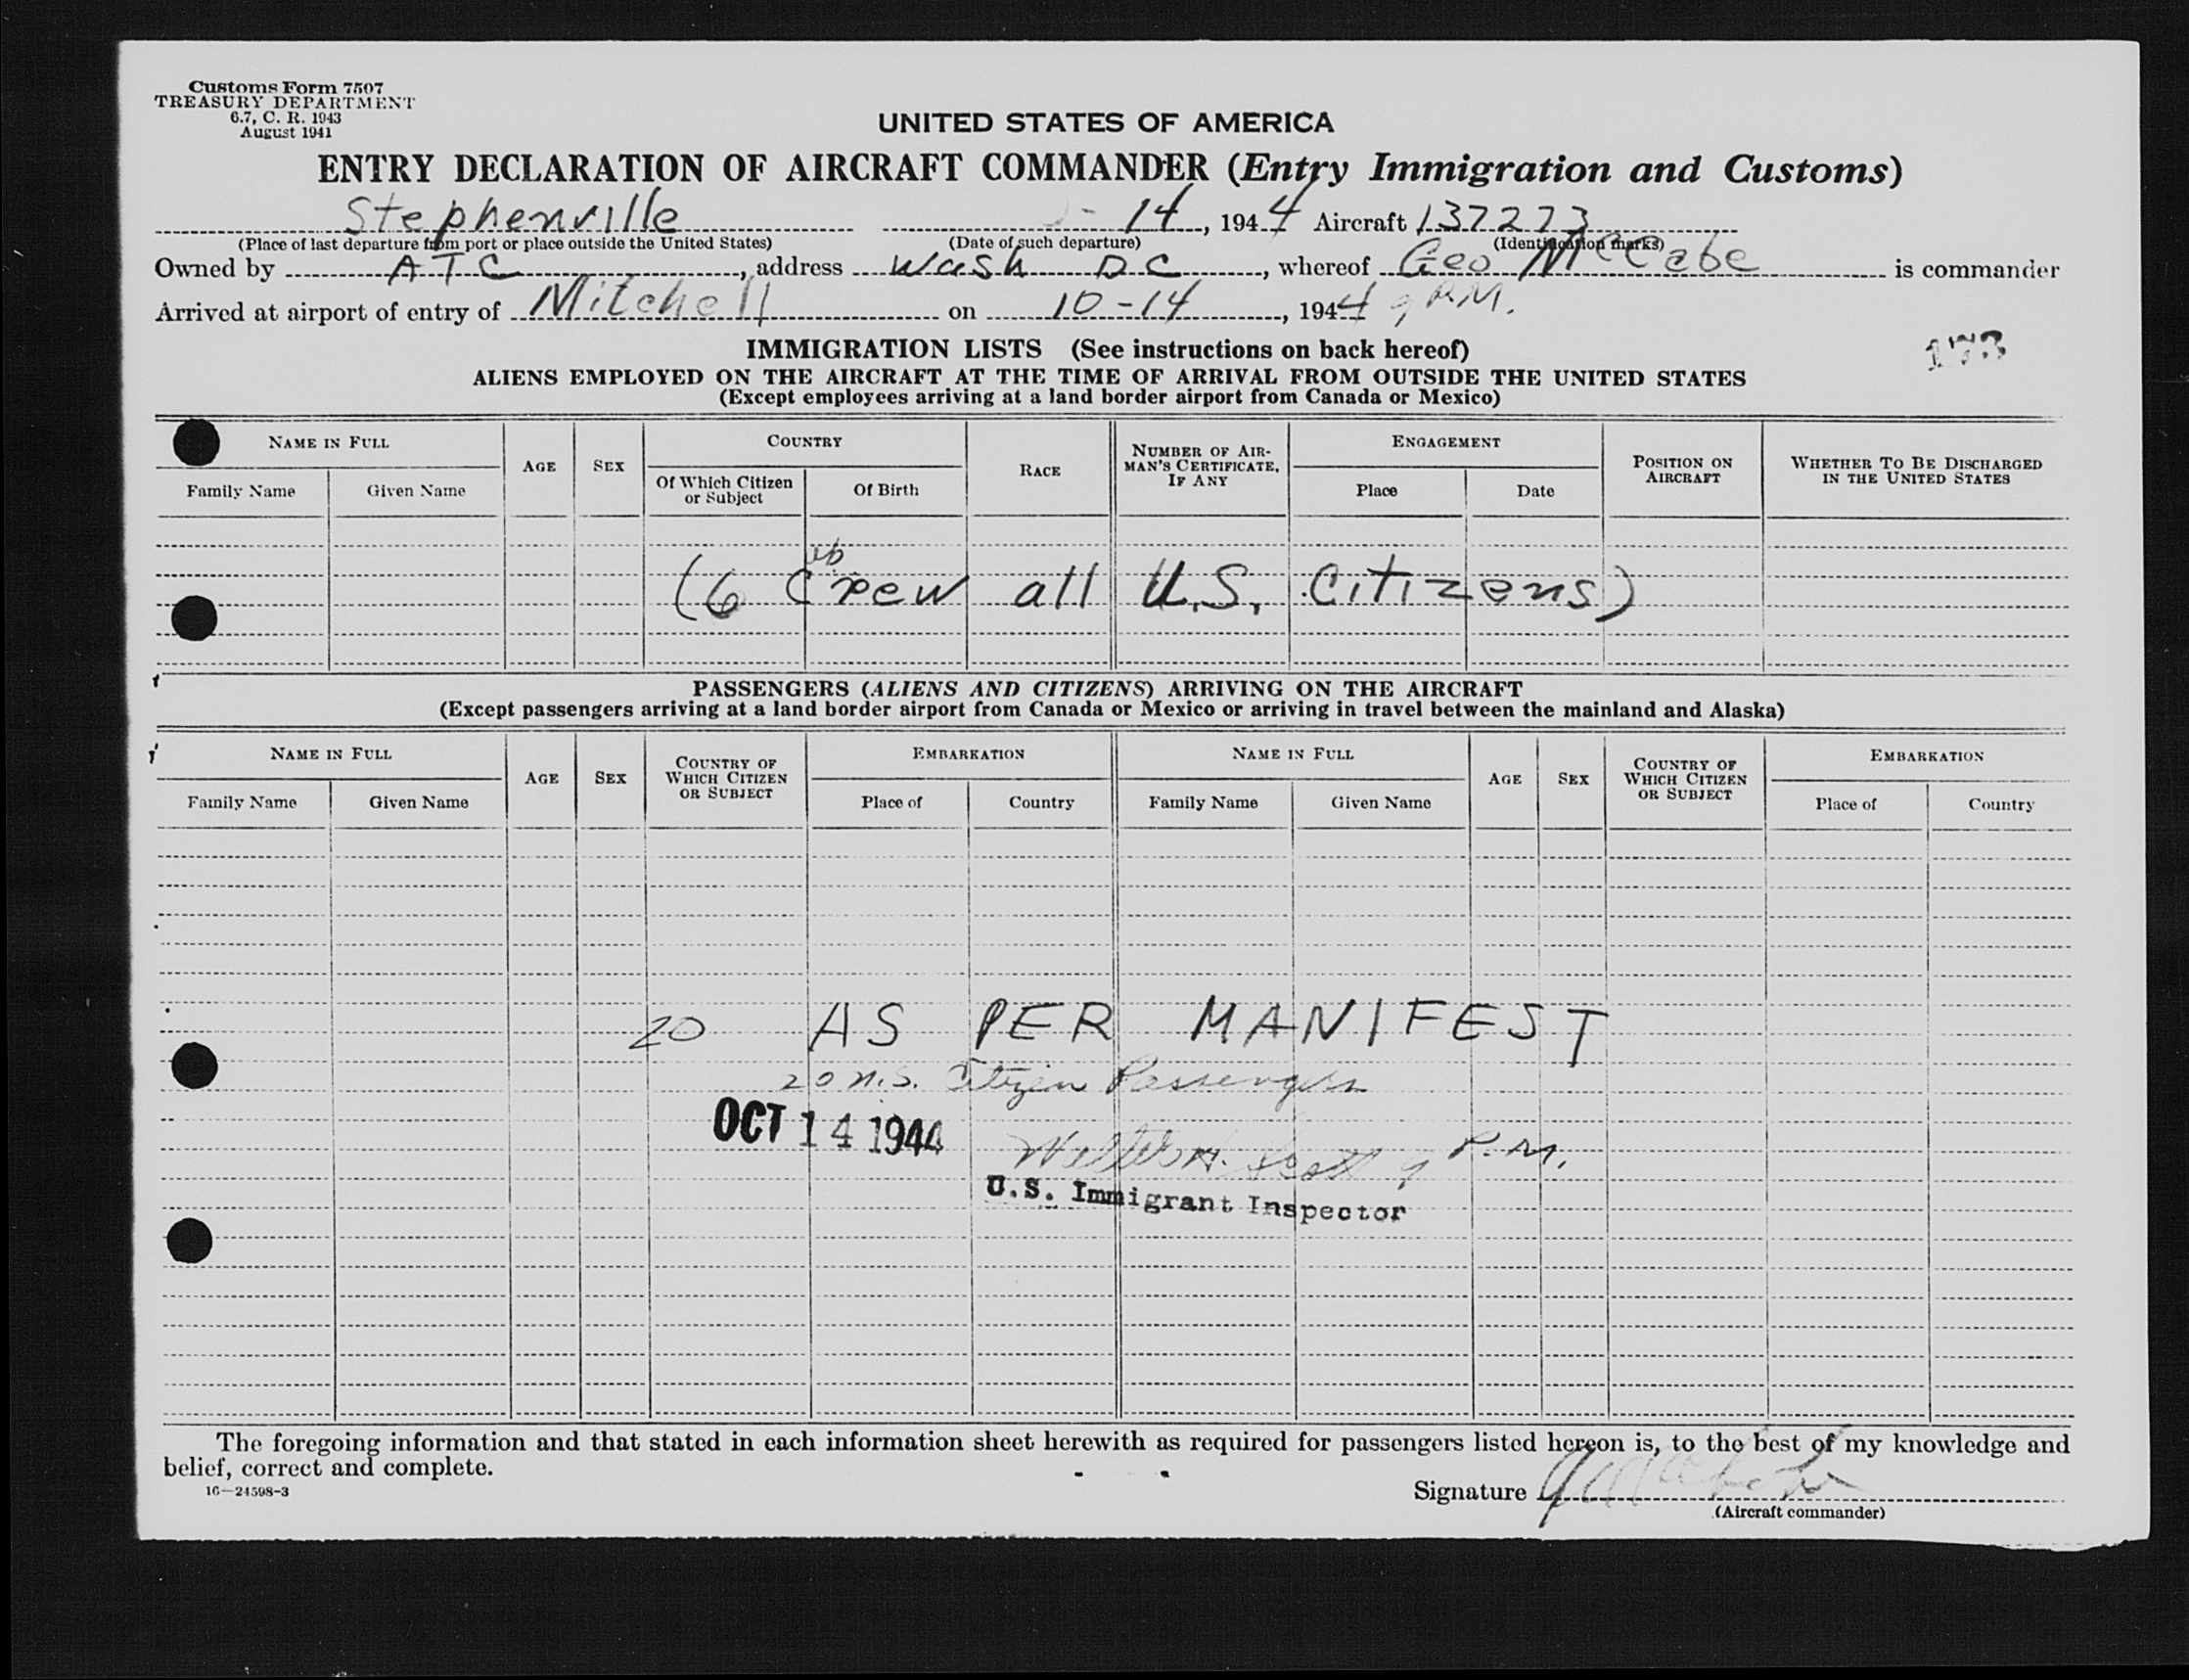 Customs Form 7507
TREASURY DEPARTMENT
6.7, C. R. 1943
August 1941
UNITED STATES OF AMERICA
ENTRY DECLARATION OF AIRCRAFT COMMANDER (Entry Immigration and Customs)
Stephenville - 14, 1944 Aircraft 137273
(Place of last departure from port or place outside the United States) (Date of such departure) (Identification marks)
Owned by ATC, address Wash DC, whereof Geo McCabe is commander
Arrived at airport of entry of Mitchell on 10-14, 1944 9 P.M.
173
IMMIGRATION LISTS (See instructions on back hereof)
ALIENS EMPLOYED ON THE AIRCRAFT AT THE TIME OF ARRIVAL FROM OUTSIDE THE UNITED STATES
(Except employees arriving at a land border airport from Canada or Mexico)
NAME IN FULL AGE SEX COUNTRY RACE NUMBER OF AIRMAN'S CERTIFICATE, IF ANY ENGAGEMENT POSITION ON AIRCRAFT WHETHER TO BE DISCHARGED IN THE UNITED STATES
Family Name Given Name Of Which Citizen or Subject Of Birth Place Date
(6 Crew all U.S. Citizens)
PASSENGERS (ALIENS AND CITIZENS) ARRIVING ON THE AIRCRAFT
(Except passengers arriving at a land border airport from Canada or Mexico or arriving in travel between the mainland and Alaska)
NAME IN FULL AGE SEX COUNTRY OF WHICH CITIZEN OR SUBJECT EMBARKATION NAME IN FULL AGE SEX COUNTRY OF WHICH CITIZEN OR SUBJECT EMBARKATION
Family Name Given Name Place of Country Family Name Given Name Place of Country
20 AS PER MANIFEST
20 U.S. Citizen Passengers
OCT 14 1944
Walter H. Scott 9 P.M.
U.S. Immigrant Inspector
The foregoing information and that stated in each information sheet herewith as required for passengers listed hereon is, to the best of my knowledge and
belief, correct and complete.
16—24598-3
Signature
(Aircraft commander)